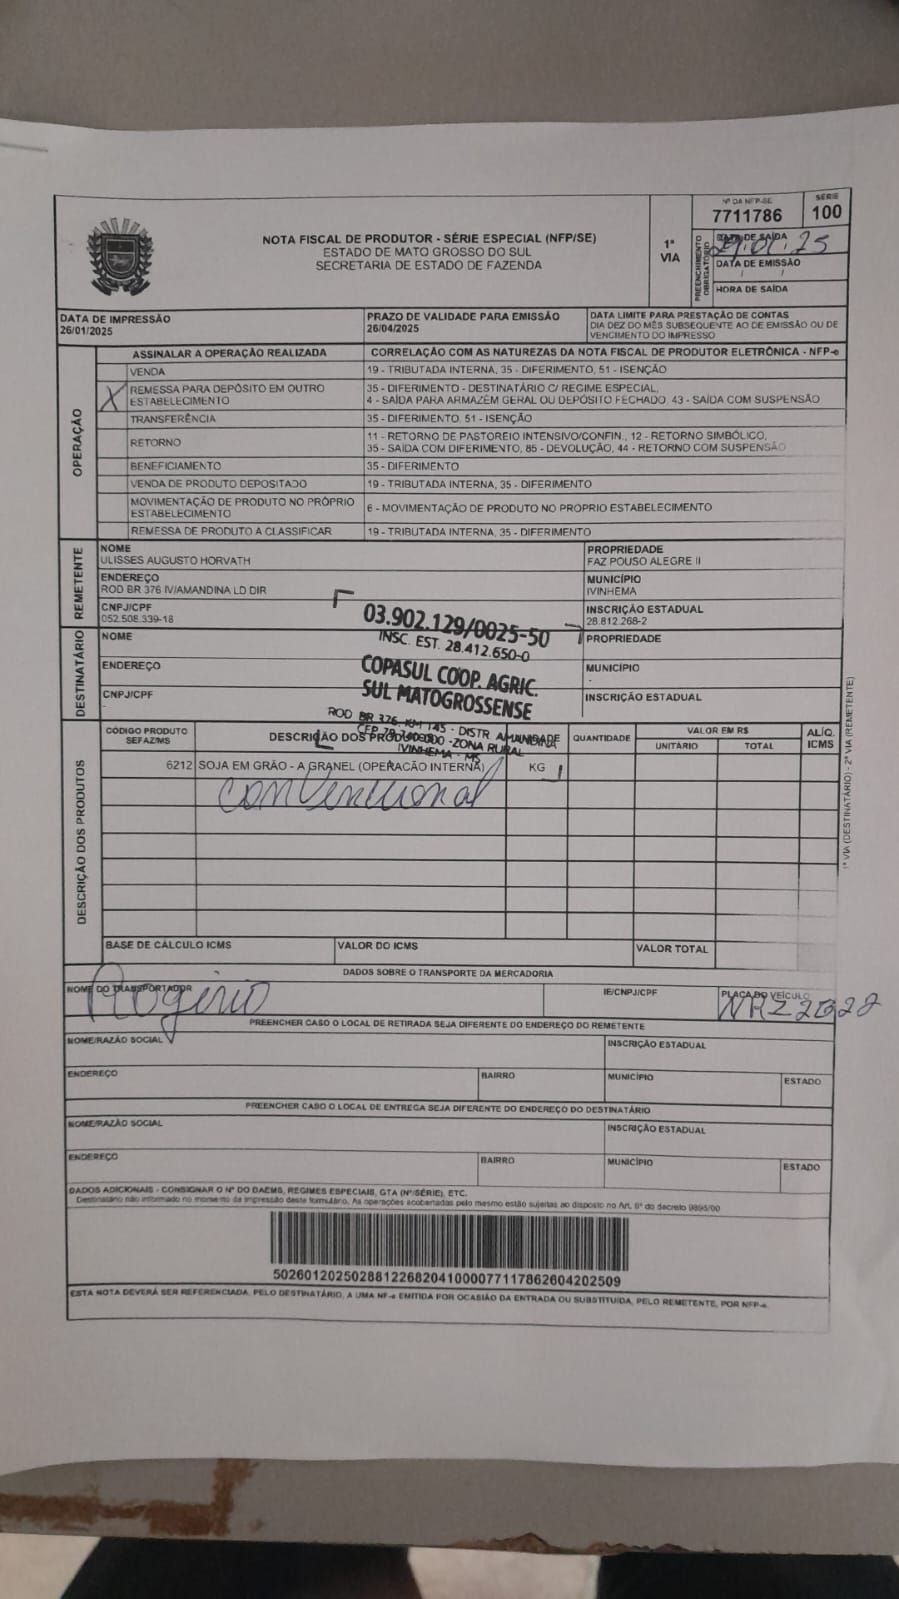 NOTA FISCAL DE PRODUTOR - SÉRIE ESPECIAL (NFP/SE)
ESTADO DE MATO GROSSO DO SUL
SECRETARIA DE ESTADO DE FAZENDA
1ª VIA
Nº DA NFP-SE
7711786
SÉRIE
100
PREENCHIMENTO OBRIGATÓRIO
DATA DE SAÍDA
29.01.25
DATA DE EMISSÃO
/ /
HORA DE SAÍDA
DATA DE IMPRESSÃO
26/01/2025
PRAZO DE VALIDADE PARA EMISSÃO
26/04/2025
DATA LIMITE PARA PRESTAÇÃO DE CONTAS
DIA DEZ DO MÊS SUBSEQUENTE AO DE EMISSÃO OU DE
VENCIMENTO DO IMPRESSO
OPERAÇÃO
ASSINALAR A OPERAÇÃO REALIZADA
CORRELAÇÃO COM AS NATUREZAS DA NOTA FISCAL DE PRODUTOR ELETRÔNICA - NFP-e
VENDA
19 - TRIBUTADA INTERNA, 35 - DIFERIMENTO, 51 - ISENÇÃO
X
REMESSA PARA DEPÓSITO EM OUTRO
ESTABELECIMENTO
35 - DIFERIMENTO - DESTINATÁRIO C/ REGIME ESPECIAL,
4 - SAÍDA PARA ARMAZÉM GERAL OU DEPÓSITO FECHADO, 43 - SAÍDA COM SUSPENSÃO
TRANSFERÊNCIA
35 - DIFERIMENTO, 51 - ISENÇÃO
RETORNO
11 - RETORNO DE PASTOREIO INTENSIVO/CONFIN., 12 - RETORNO SIMBÓLICO,
35 - SAÍDA COM DIFERIMENTO, 85 - DEVOLUÇÃO, 44 - RETORNO COM SUSPENSÃO
BENEFICIAMENTO
35 - DIFERIMENTO
VENDA DE PRODUTO DEPOSITADO
19 - TRIBUTADA INTERNA, 35 - DIFERIMENTO
MOVIMENTAÇÃO DE PRODUTO NO PRÓPRIO
ESTABELECIMENTO
6 - MOVIMENTAÇÃO DE PRODUTO NO PRÓPRIO ESTABELECIMENTO
REMESSA DE PRODUTO A CLASSIFICAR
19 - TRIBUTADA INTERNA, 35 - DIFERIMENTO
REMETENTE
NOME
ULISSES AUGUSTO HORVATH
PROPRIEDADE
FAZ POUSO ALEGRE II
ENDEREÇO
ROD BR 376 IV/AMANDINA LD DIR
MUNICÍPIO
IVINHEMA
CNPJ/CPF
052.508.339-18
INSCRIÇÃO ESTADUAL
28.812.268-2
DESTINATÁRIO
NOME
PROPRIEDADE
ENDEREÇO
MUNICÍPIO
-
CNPJ/CPF
-
INSCRIÇÃO ESTADUAL
03.902.129/0025-50
INSC. EST. 28.412.650-0
COPASUL COOP. AGRIC.
SUL MATOGROSSENSE
ROD BR 376, KM 145 - DISTR AMANDINA
ZONA RURAL
IVINHEMA - MS
DESCRIÇÃO DOS PRODUTOS
CÓDIGO PRODUTO
SEFAZ/MS
DESCRIÇÃO DOS PRODUTOS
QUANTIDADE
VALOR EM R$
UNITÁRIO
TOTAL
ALÍQ.
ICMS
6212 SOJA EM GRÃO - A GRANEL (OPERACÃO INTERNA) KG
Convencional
BASE DE CÁLCULO ICMS
VALOR DO ICMS
VALOR TOTAL
1ª VIA (DESTINATÁRIO) - 2ª VIA (REMETENTE)
DADOS SOBRE O TRANSPORTE DA MERCADORIA
NOME DO TRANSPORTADOR
Rogério
IE/CNPJ/CPF
PLACA DO VEÍCULO
PREENCHER CASO O LOCAL DE RETIRADA SEJA DIFERENTE DO ENDEREÇO DO REMETENTE
NOME/RAZÃO SOCIAL
INSCRIÇÃO ESTADUAL
ENDEREÇO
BAIRRO
MUNICÍPIO
ESTADO
PREENCHER CASO O LOCAL DE ENTREGA SEJA DIFERENTE DO ENDEREÇO DO DESTINATÁRIO
NOME/RAZÃO SOCIAL
INSCRIÇÃO ESTADUAL
ENDEREÇO
BAIRRO
MUNICÍPIO
ESTADO
DADOS ADICIONAIS - CONSIGNAR O Nº DO DAEMS, REGIMES ESPECIAIS, GTA (Nº/SÉRIE), ETC.
Destinatário não informado no momento da impressão deste formulário. As operações acobertadas pelo mesmo estão sujeitas ao disposto no Art. 9º do decreto 9895/00
50260120250288122682041000077117862604202509
ESTA NOTA DEVERÁ SER REFERENCIADA, PELO DESTINATÁRIO, A UMA NF-e EMITIDA POR OCASIÃO DA ENTRADA OU SUBSTITUÍDA, PELO REMETENTE, POR NFP-e.